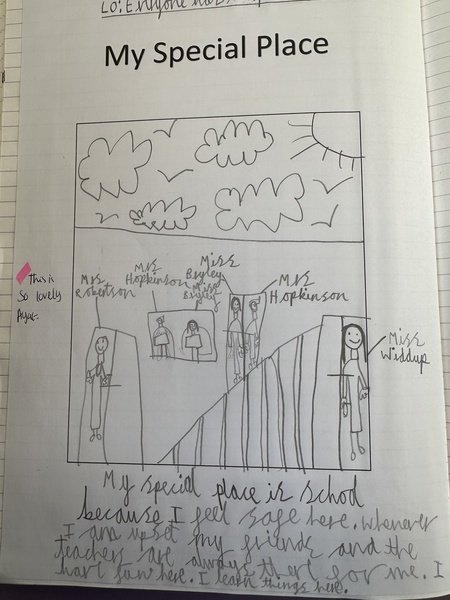 LO: Everyone has
My Special Place
Miss
Bryley
Mrs
Hopkinson
Miss
Bryley
Mrs
Hopkinson
Mrs
Robertson
This is
so lovely
Miss
Widdup
My special place is school
because I feel safe here. whenever
I am upset my friends and the
teachers are always there for me. I
have fun here. I learn things here.